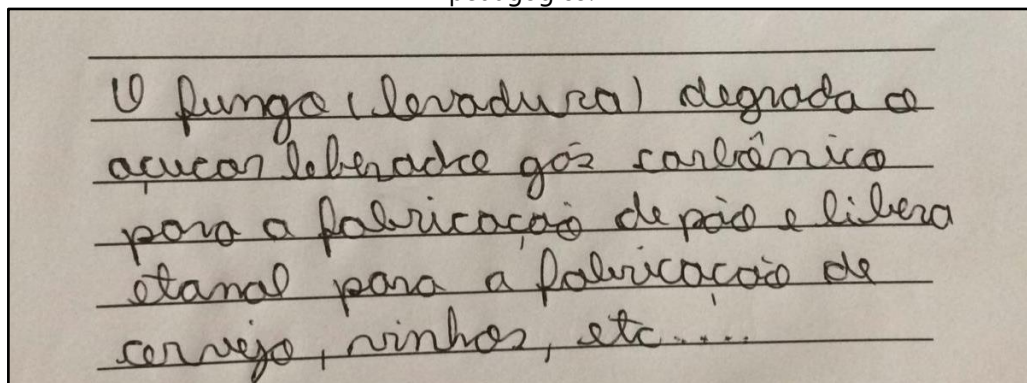 O fungo (levadura) degrada o
açucar leberadre gás carbônico
para a fabricação de pão e libera
etanol para a fabricação de
cerveja, vinhos, etc....